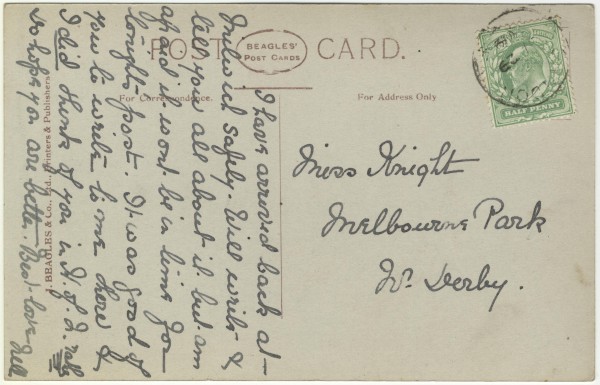 POST CARD.
BEAGLES'
POST CARDS
For Correspondence.
For Address Only
HALF PENNY
J. BEAGLES & Co., Ltd., Printers & Publishers
I have arrived back at
safely. Will write &
tell you all about it but am
afraid it wont be in time for
tonight's post. It was good of
you to write to me there &
I did think of you in N. of I.
So hope you are better. Best love
Nell
Miss Knight
Melbourne Park
Nr. Derby.